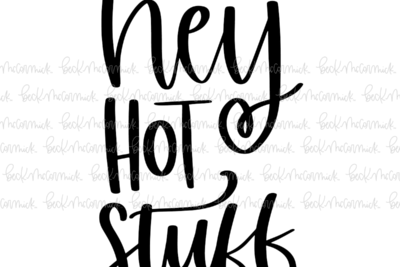 hey
HOT
stuff